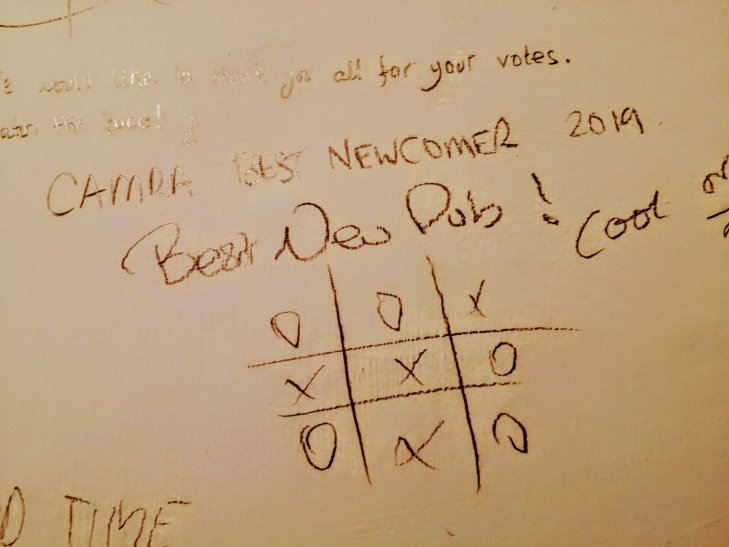 e would like to thank you all for your votes.
this space!
CAMRA BEST NEWCOMER 2019
Best New Pub! Cool
O O X
X X O
O X O
TIME